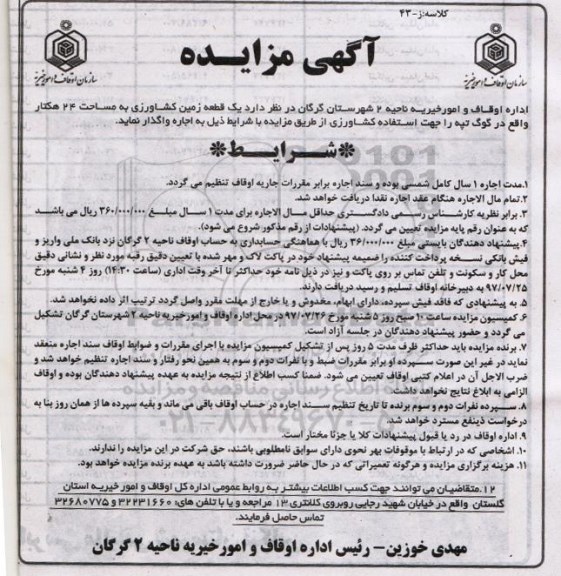 کلاسه:ز-۴۳
آگهی مزایده
سازمان اوقاف و امور خیریه
سازمان اوقاف و امور خیریه
اداره اوقـاف و امورخیریـه ناحیه ۲ شهرسـتان گرگان در نظر دارد یک قطعه زمین کشـاورزی به مسـاحت ۲۴ هکتار
واقع در گوگ تپه را جهت استفاده کشاورزی از طریق مزایده با شرایط ذیل به اجاره واگذار نماید.
*شـرایـط*
۱.مدت اجاره ۱ سال کامل شمسی بوده و سند اجاره برابر مقررات جاریه اوقاف تنظیم می گردد.
۲.تمام مال الاجاره هنگام عقد اجاره نقدا دریافت خواهد شد.
۳. برابر نظریه کارشـناس رسـمی دادگسـتری حداقل مـال الاجاره برای مدت ۱ سـال مبلـغ ۳۶۰/۰۰۰/۰۰۰ ریال می باشـد
که به عنوان رقم پایه مزایده تعیین می گردد. (پیشنهادات از رقم مذکور شروع می شود).
۴.پیشنهاد دهندگان بایستی مبلغ ۳۶/۰۰۰/۰۰۰ ریال با هماهنگی حسابداری به حساب اوقاف ناحیه ۲ گرگان نزد بانک ملی واریز و
فیش بانکی نسـخه پرداخت کننده را ضمیمه پیشنهاد خود در پاکت لاک و مهر شده با تعیین دقیق رقبه مورد نظر و نشانی دقیق
محل کار و سکونت و تلفن تماس بر روی پاکت و نیز در ذیل نامه خود حداکثر تا آخر وقت اداری (ساعت ۱۴:۳۰) روز ۴ شنبه مورخ
۹۷/۰۷/۲۵ به دبیرخانه اوقاف تسلیم و رسید دریافت دارند.
۵. به پیشنهادی که فاقد فیش سپرده، دارای ابهام، مخدوش و یا خارج از مهلت مقرر واصل گردد ترتیب اثر داده نخواهد شد.
۶. کمیسیون مزایده ساعت ۱۰ صبح روز ۵ شنبه مورخ ۹۷/۰۷/۲۶ در محل اداره اوقاف و امورخیریه ناحیه ۲ شهرستان گرگان تشکیل
می گردد و حضور پیشنهاد دهندگان در جلسه آزاد است.
۷. برنده مزایده باید حداکثر ظرف مدت ۵ روز پس از تشکیل کمیسیون مزایده با اجرای مقررات و ضوابط اوقاف سند اجاره منعقد
نماید در غیر این صورت سـپرده او برابر مقررات ضبط و با نفرات دوم و سـوم به همین نحو رفتار و سند اجاره تنظیم خواهد شد و
ضرب الاجل آن در اعلام کتبی اوقاف تعیین می شود. ضمنا کسب اطلاع از نتیجه مزایده به عهده پیشنهاد دهندگان بوده و اوقاف
الزامی به ابلاغ نتایج نخواهد داشت.
۸. سـپرده نفرات دوم و سوم برنده تا تاریخ تنظیم سـند اجاره در حساب اوقاف باقی می ماند و بقیه سپرده ها از همان روز بنا به
درخواست ذینفع مسترد خواهد شد.
۹. اداره اوقاف در رد یا قبول پیشنهادات کلا یا جزئا مختار است.
۱۰. اشخاصی که در ارتباط با موقوفات بهر نحوی دارای سوابق نامطلوبی باشند، حق شرکت در این مزایده را ندارند.
۱۱. هزینه برگزاری مزایده و هرگونه تعمیراتی که در حال حاضر ضرورت داشته باشد به عهده برنده مزایده خواهد بود.
۱۲.متقاضیـان می تواننـد جهت کسـب اطلاعات بیشتـر بـه روابط عمومی اداره کل اوقاف و امور خیریـه استان
گلستان واقع در خیابان شهید رجایی روبروی کلانتری ۱۳ مراجعه و یا با تلفن های: ۳۲۲۳۱۶۶۰ و ۳۲۶۸۰۷۷۵
تماس حاصل فرمایند.
مهدی خوزین- رئیس اداره اوقاف و امور خیریه ناحیه ۲ گرگان